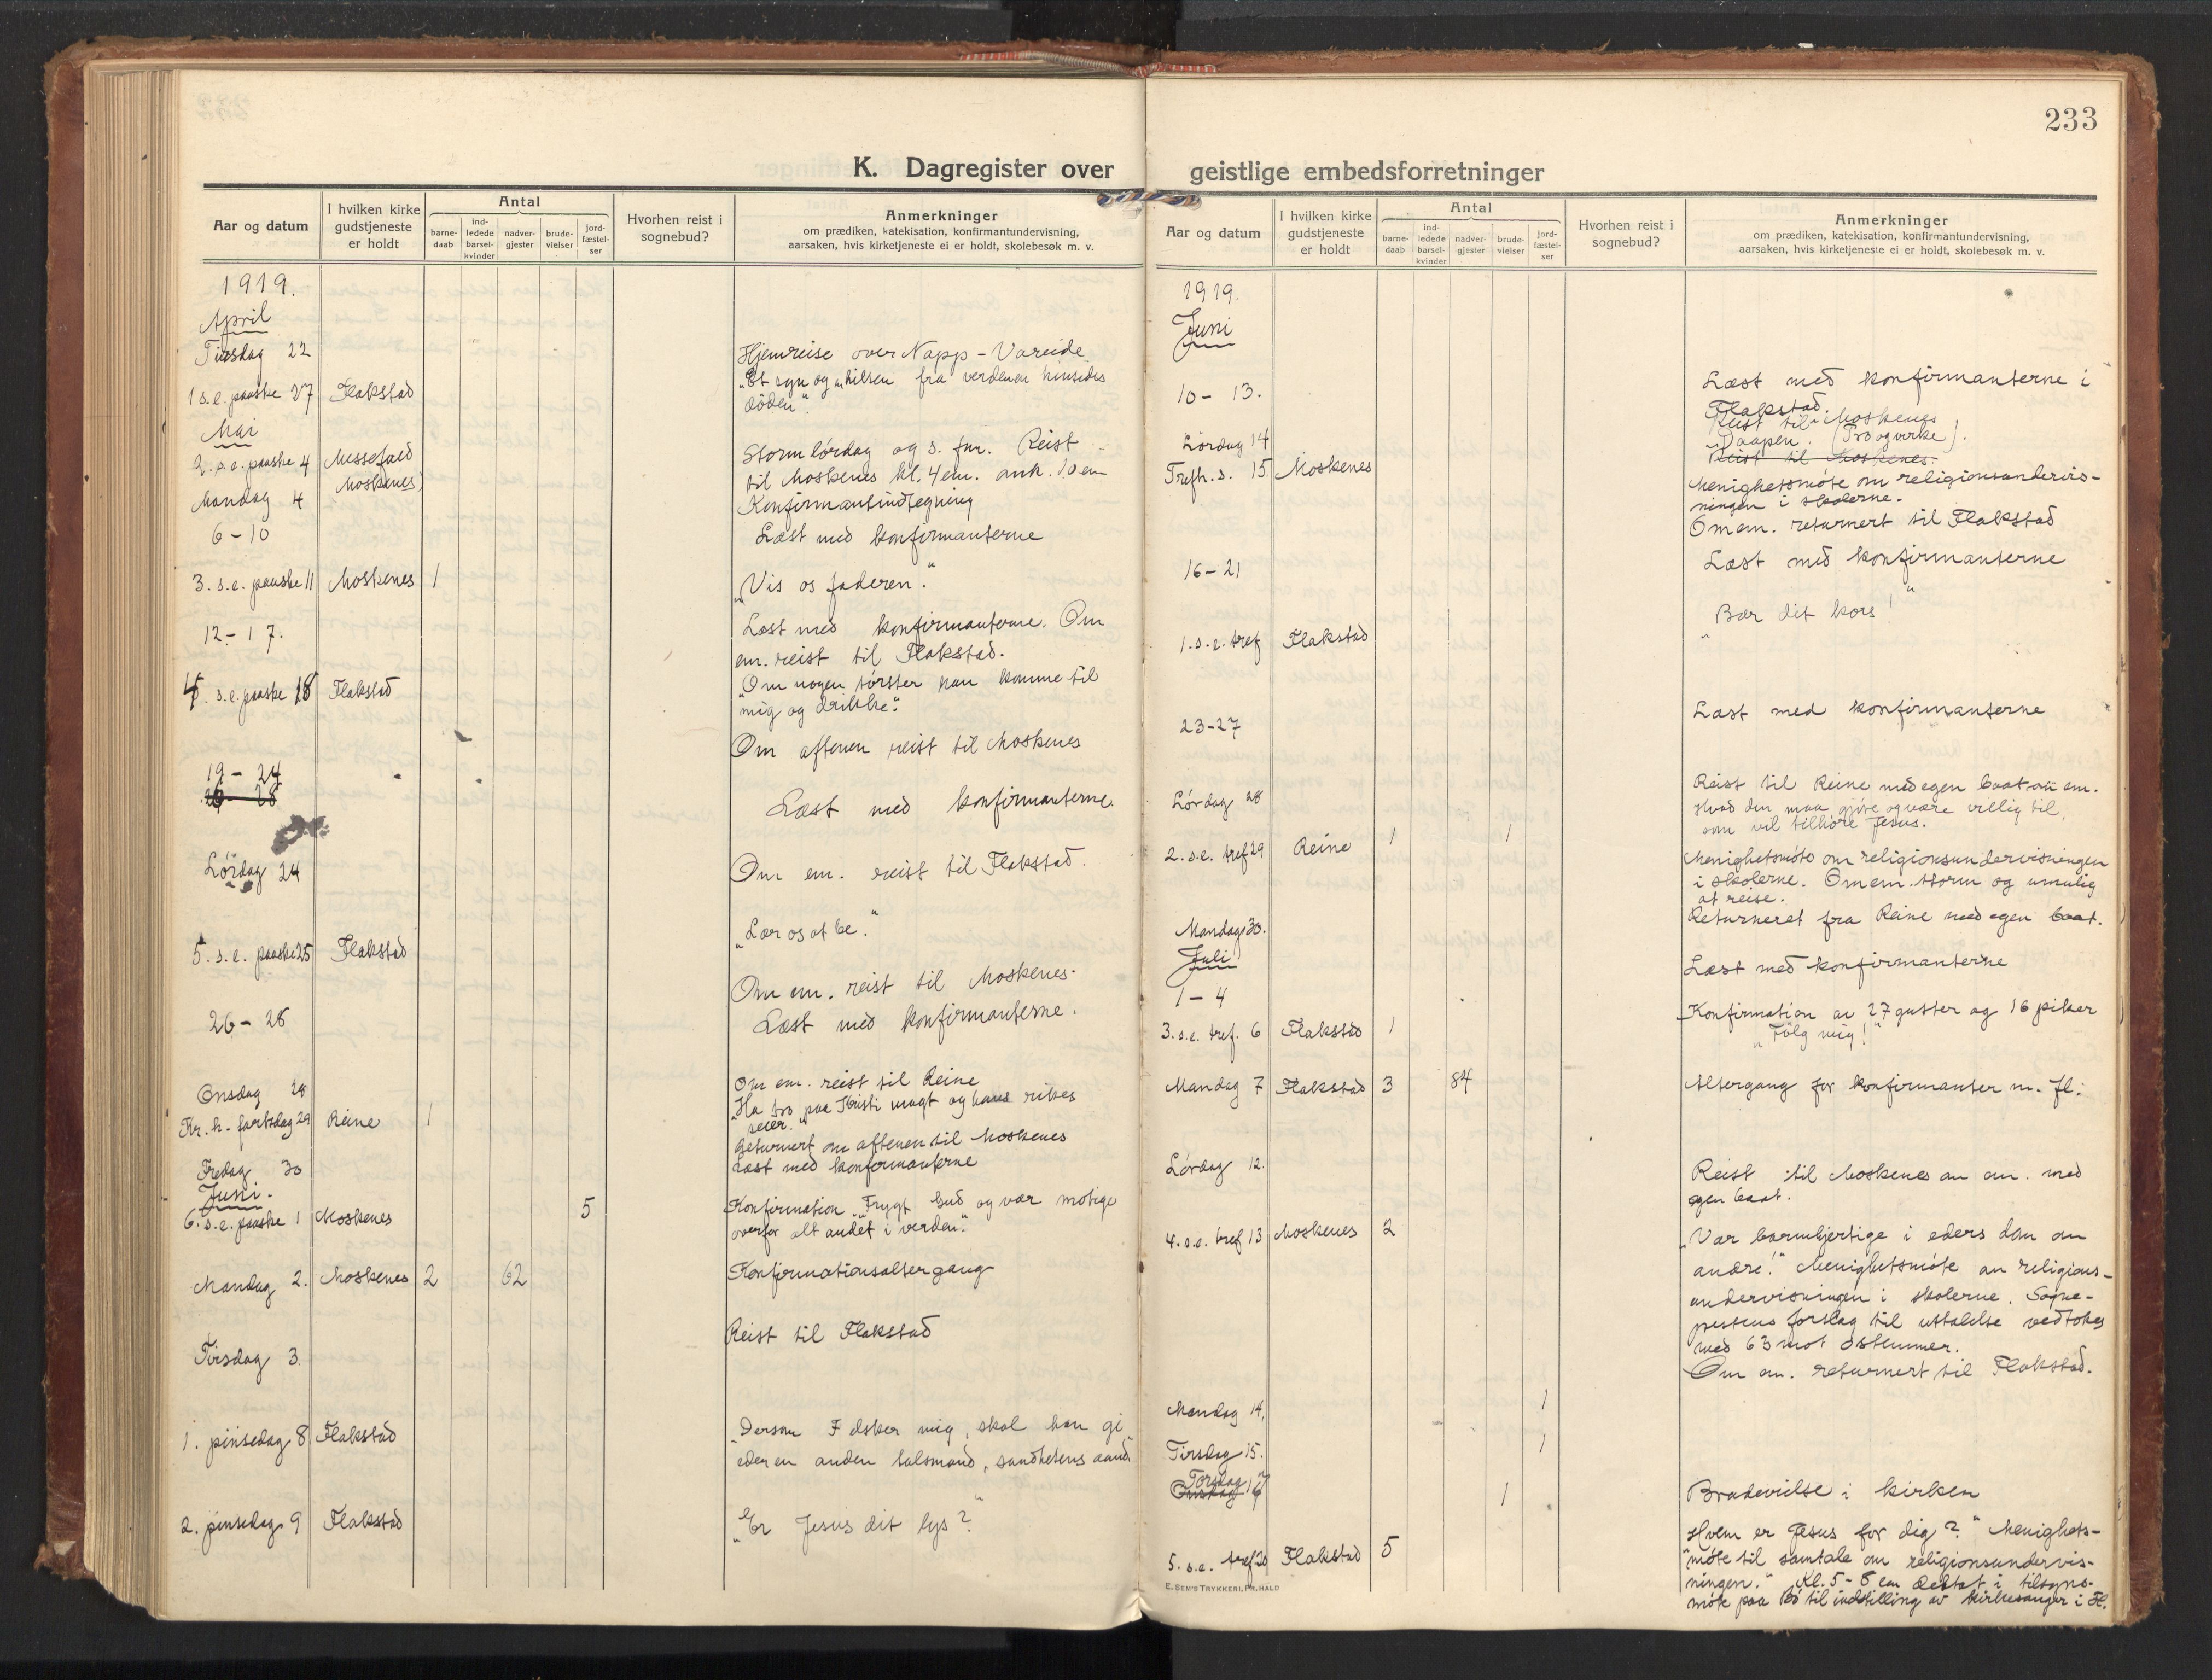 233
K. Dagregister over
Aar og datum
I hvilken kirke
gudstjeneste
er holdt
Antal
barne-
daab
ind-
ledede
barsel-
kvinder
nadver-
gjester
brude-
vielser
jord-
fæstel-
ser
Hvorhen reist i
sognebud?
Anmerkninger
om prædiken, katekisation, konfirmantundervisning,
aarsaken, hvis kirketjeneste ei er holdt, skolebesøk m. v.
1919.
April
Tirsdag 22 Hjemreise over Napp - Vareide
1 s.e. paaske 27 Flakstad "Et syn og en hilsen fra verdenen hinsides
døden".
Mai
2. s.e. paaske 4 Messefald Storm lørdag og s. fm. Reist
Moskenes) til Moskenes kl. 4 em. ank. 10 em
Mandag 4 Konfirmantindtegning
6-10 Læst med konfirmanterne
3. s.e. paaske 11 Moskenes 1 "Vis os faderen."
12-17. Læst med konfirmanterne. Om
em. reist til Flakstad.
4. s.e. paaske 18 Flakstad "Om nogen tørster han komme til
mig og drikke".
Om aftenen reist til Moskenes
19 - 24
26 - 28 Læst med konfirmanterne.
Lørdag 24 Om em. reist til Flakstad.
5. s.e. paaske 25 Flakstad "Lær os at be."
Om em. reist til Moskenes.
26 - 28 Læst med konfirmanterne.
Onsdag 28 Om em. reist til Reine
Kr. h. fartsdag 29 Reine 1 "Ha tro paa Kristi magt og hans rikes
seier."
Returnert om aftenen til Moskenes
Fredag 30 Læst med konfirmanterne
Juni.
6. s.e. paaske 1 Moskenes 5 Konfirmation. "Frygt Gud og vær modige
overfor alt andet i verden".
Mandag 2. Moskenes 2 62 Konfirmationsaltergang
Tirsdag 3 Reist til Flakstad
1. pinsedag 8 Flakstad "Dersom I elsker mig, skal han gi
eder en anden talsmand, sandhetens aand.
2. pinsedag 9 Flakstad "Er Jesus dit lys?"
geistlige embedsforretninger
Aar og datum
I hvilken kirke
gudstjeneste
er holdt
Antal
barne-
daab
ind-
ledede
barsel-
kvinder
nadver-
gjester
brude-
vielser
jord-
fæstel-
ser
Hvorhen reist i
sognebud?
Anmerkninger
om prædiken, katekisation, konfirmantundervisning,
aarsaken, hvis kirketjeneste ei er holdt, skolebesøk m. v.
1919.
Juni
10 - 13. Læst med konfirmanterne i
Flakstad.
Lørdag 14 Reist til Moskenes
Trefh. s. 15. Moskenes "Daapen. (Tro og virke).
Reist til Moskenes.
Menighetsmøte om religionsundervis-
ningen i skolerne.
Om em. returnert til Flakstad
16-21 Læst med konfirmanterne
1. s.e. tref Flakstad "Bær dit kors!"
23-27 Læst med konfirmanterne
Lørdag 28 Reist til Reine med egen baat om em.
Hvad den maa gjøre og være villig til,
som vil tilhøre Jesus.
2. s.e. tref 29 Reine 1 1 Menighetsmøte om religionsundervisningen
i skolerne. Om em. storm og umulig
at reise.
Mandag 30. Returneret fra Reine med egen baat.
Juli
1 - 4 Læst med konfirmanterne
3. s.e. tref. 6 Flakstad 1 Konfirmation av 27 gutter og 16 piker
"Følg mig!"
Mandag 7 Flakstad 3 84 Altergang for konfirmanter m. fl.
Lørdag 12. Reist til Moskenes om em. med
egen baat.
4. s.e. tref 13 Moskenes 2 "Vær barmhjertige i eders dom om
andre!" Menighetsmøte om religions-
undervisningen i skolerne. Sogne-
prestens forslag til uttalelse vedtokes
med 63 mot 0 stemmer.
Om em. returnert til Flakstad.
Mandag 14, 1
Tirsdag 15. 1
Torsdag 17
Onsdag 1 Brudevielse i kirken
5. s.e. tref 20 Flakstad 5 Hvem er Jesus for dig?" Menighets-
møte til samtale om religionsundervis-
ningen." Kl. 5-8 em deltat i tilsyns-
møte paa Bø til indstilling av kirkesanger i Fl.
E. SEM'S TRYKKERI, FR.HALD